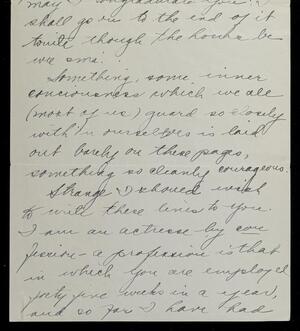 may I congratulate you. I
shall go on to the end of it
tonite though the hours be
wee sma'.
Something, some inner
consciousness which we all
(most of us) guard so closely
within ourselves is laid
out barely on these pages,
something so cleanly courageous.
Strange I should wish
to write these lines to you
I am an actresse by con
fession - a profession is that
in which you are employed
forty five weeks in a year,
and so far I have had